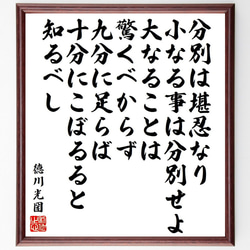 分別は堪忍なり
小なる事は分別せよ
大なることは
驚くべからず
九分に足らば
十分にこぼるると
知るべし
徳川光圀